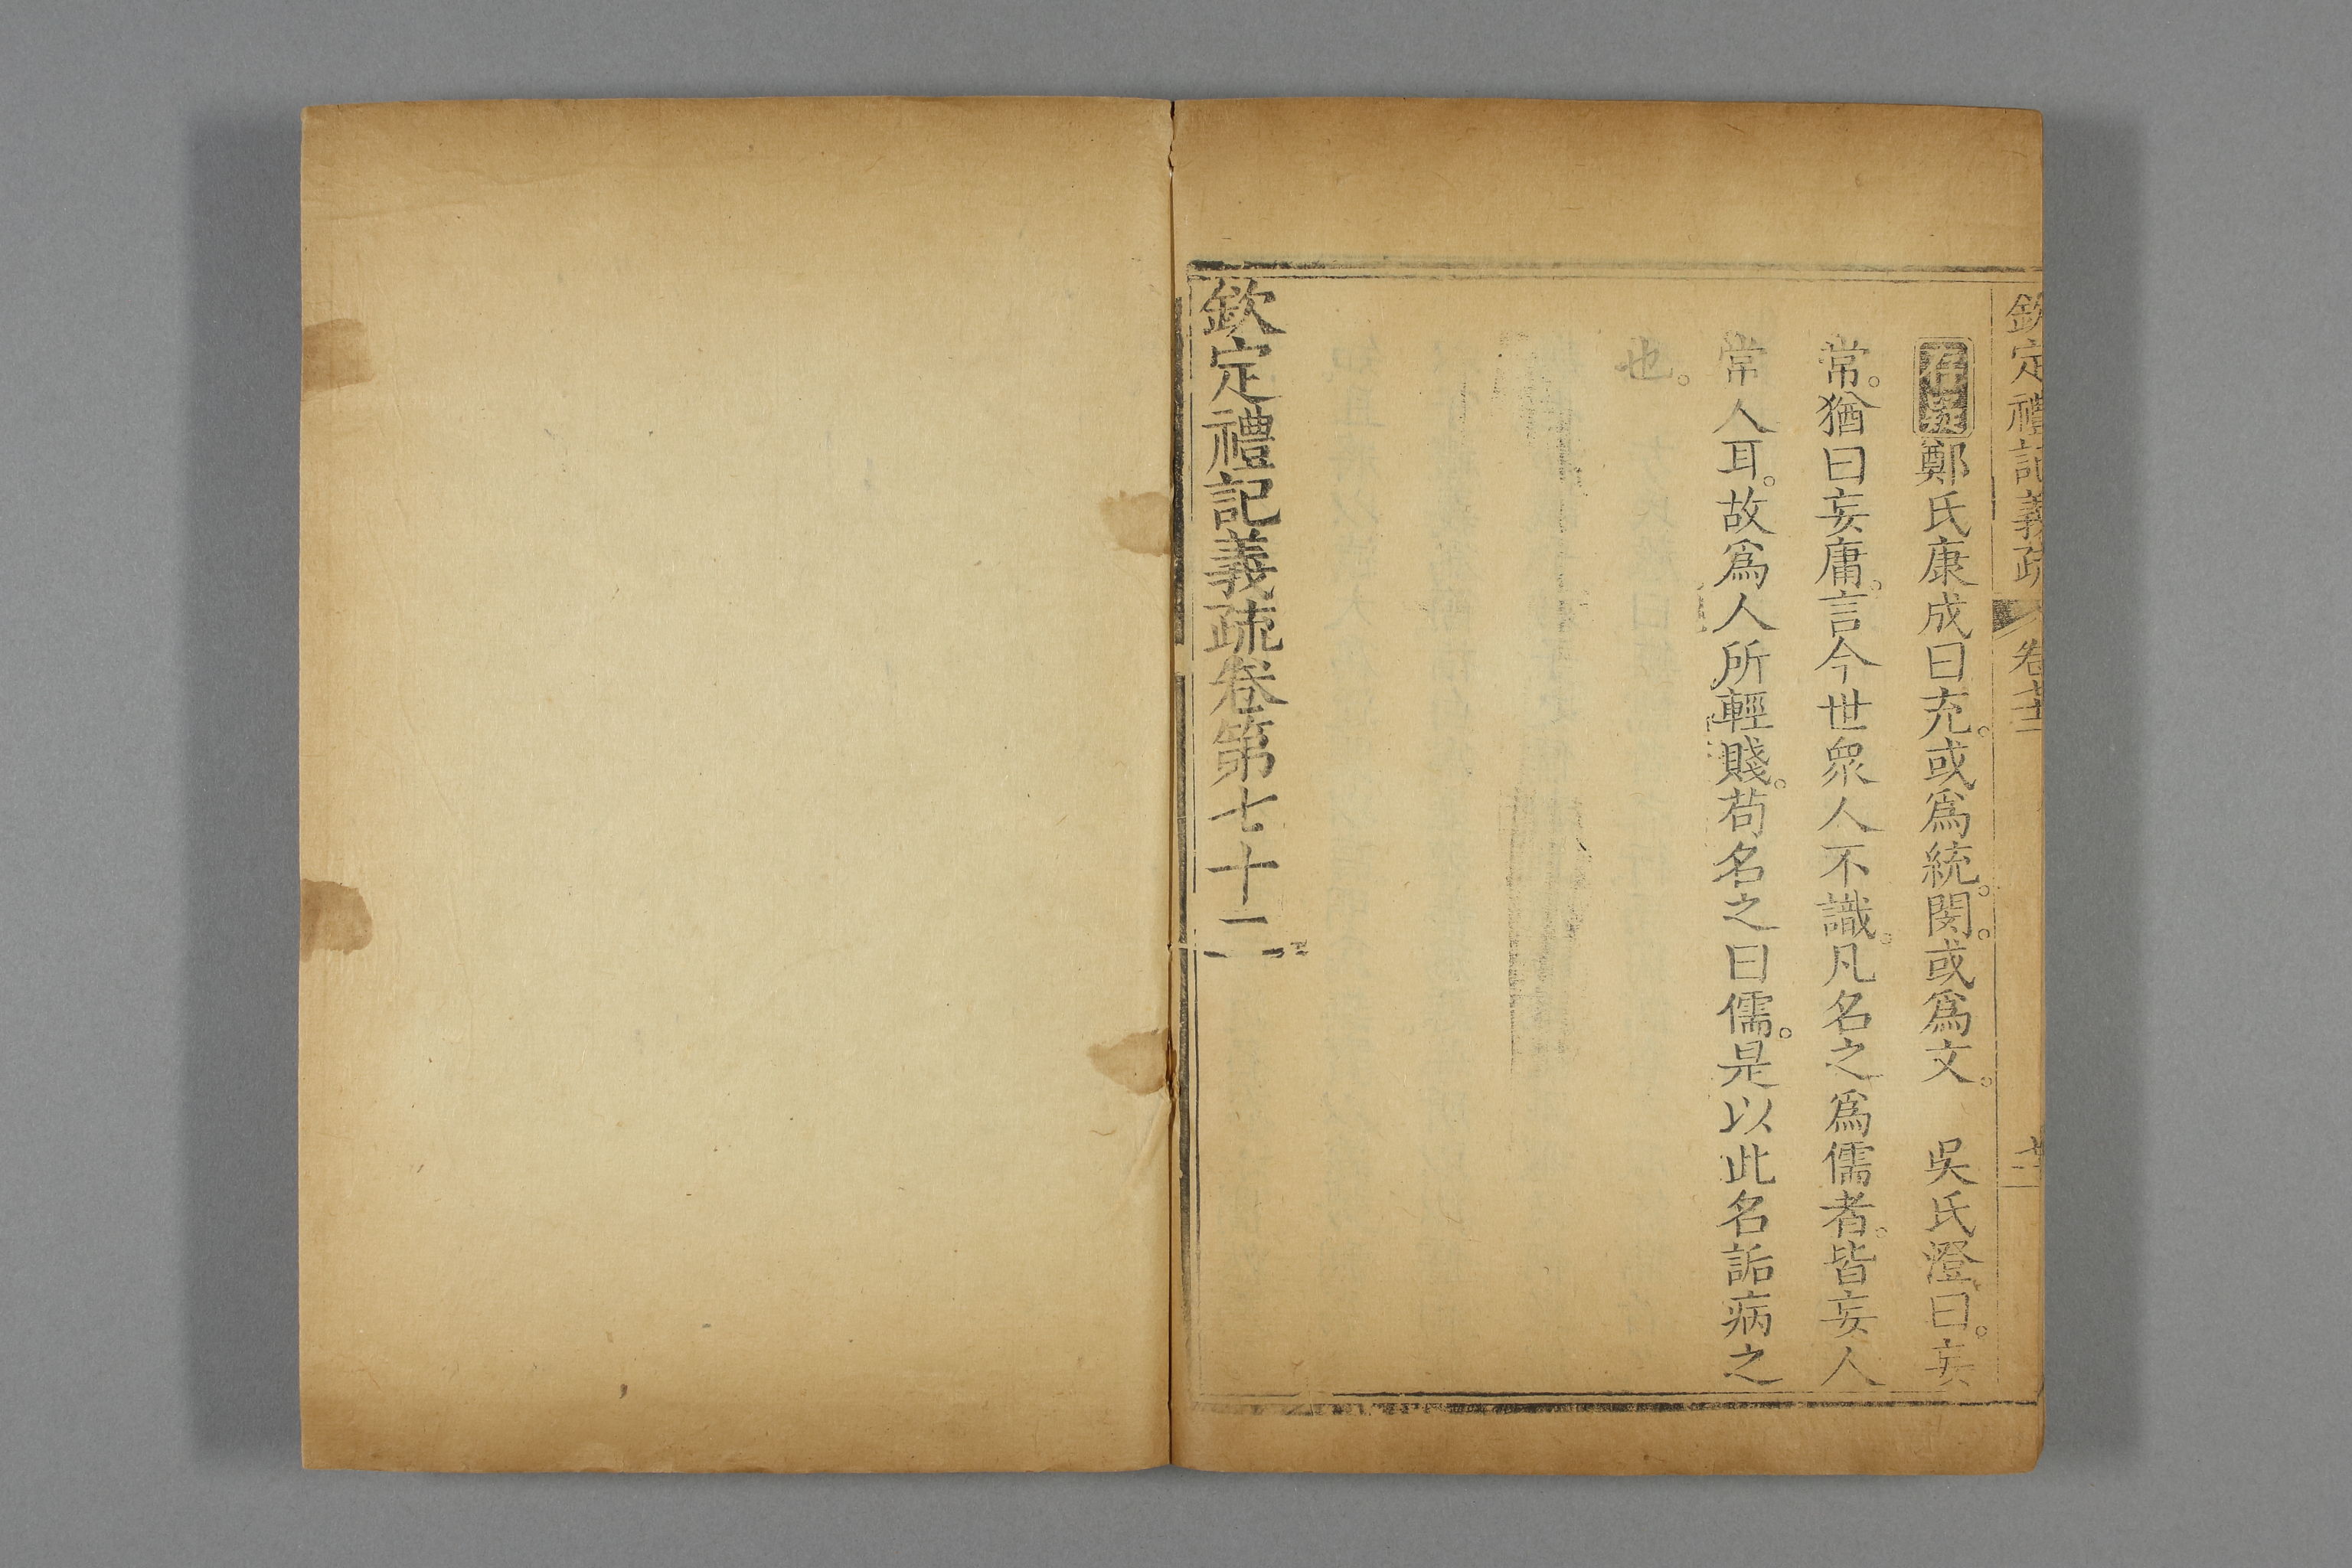 欽定禮記義疏 卷七十二
存疑鄭氏康成曰充。或爲統。閔。或爲文。 吳氏澄曰。妄
常。猶曰妄庸。言今世眾人不識。凡名之爲儒者。皆妄人
常人耳。故爲人所輕賤。苟名之曰儒。是以此名詬病之
也。
欽定禮記義疏卷第七十二